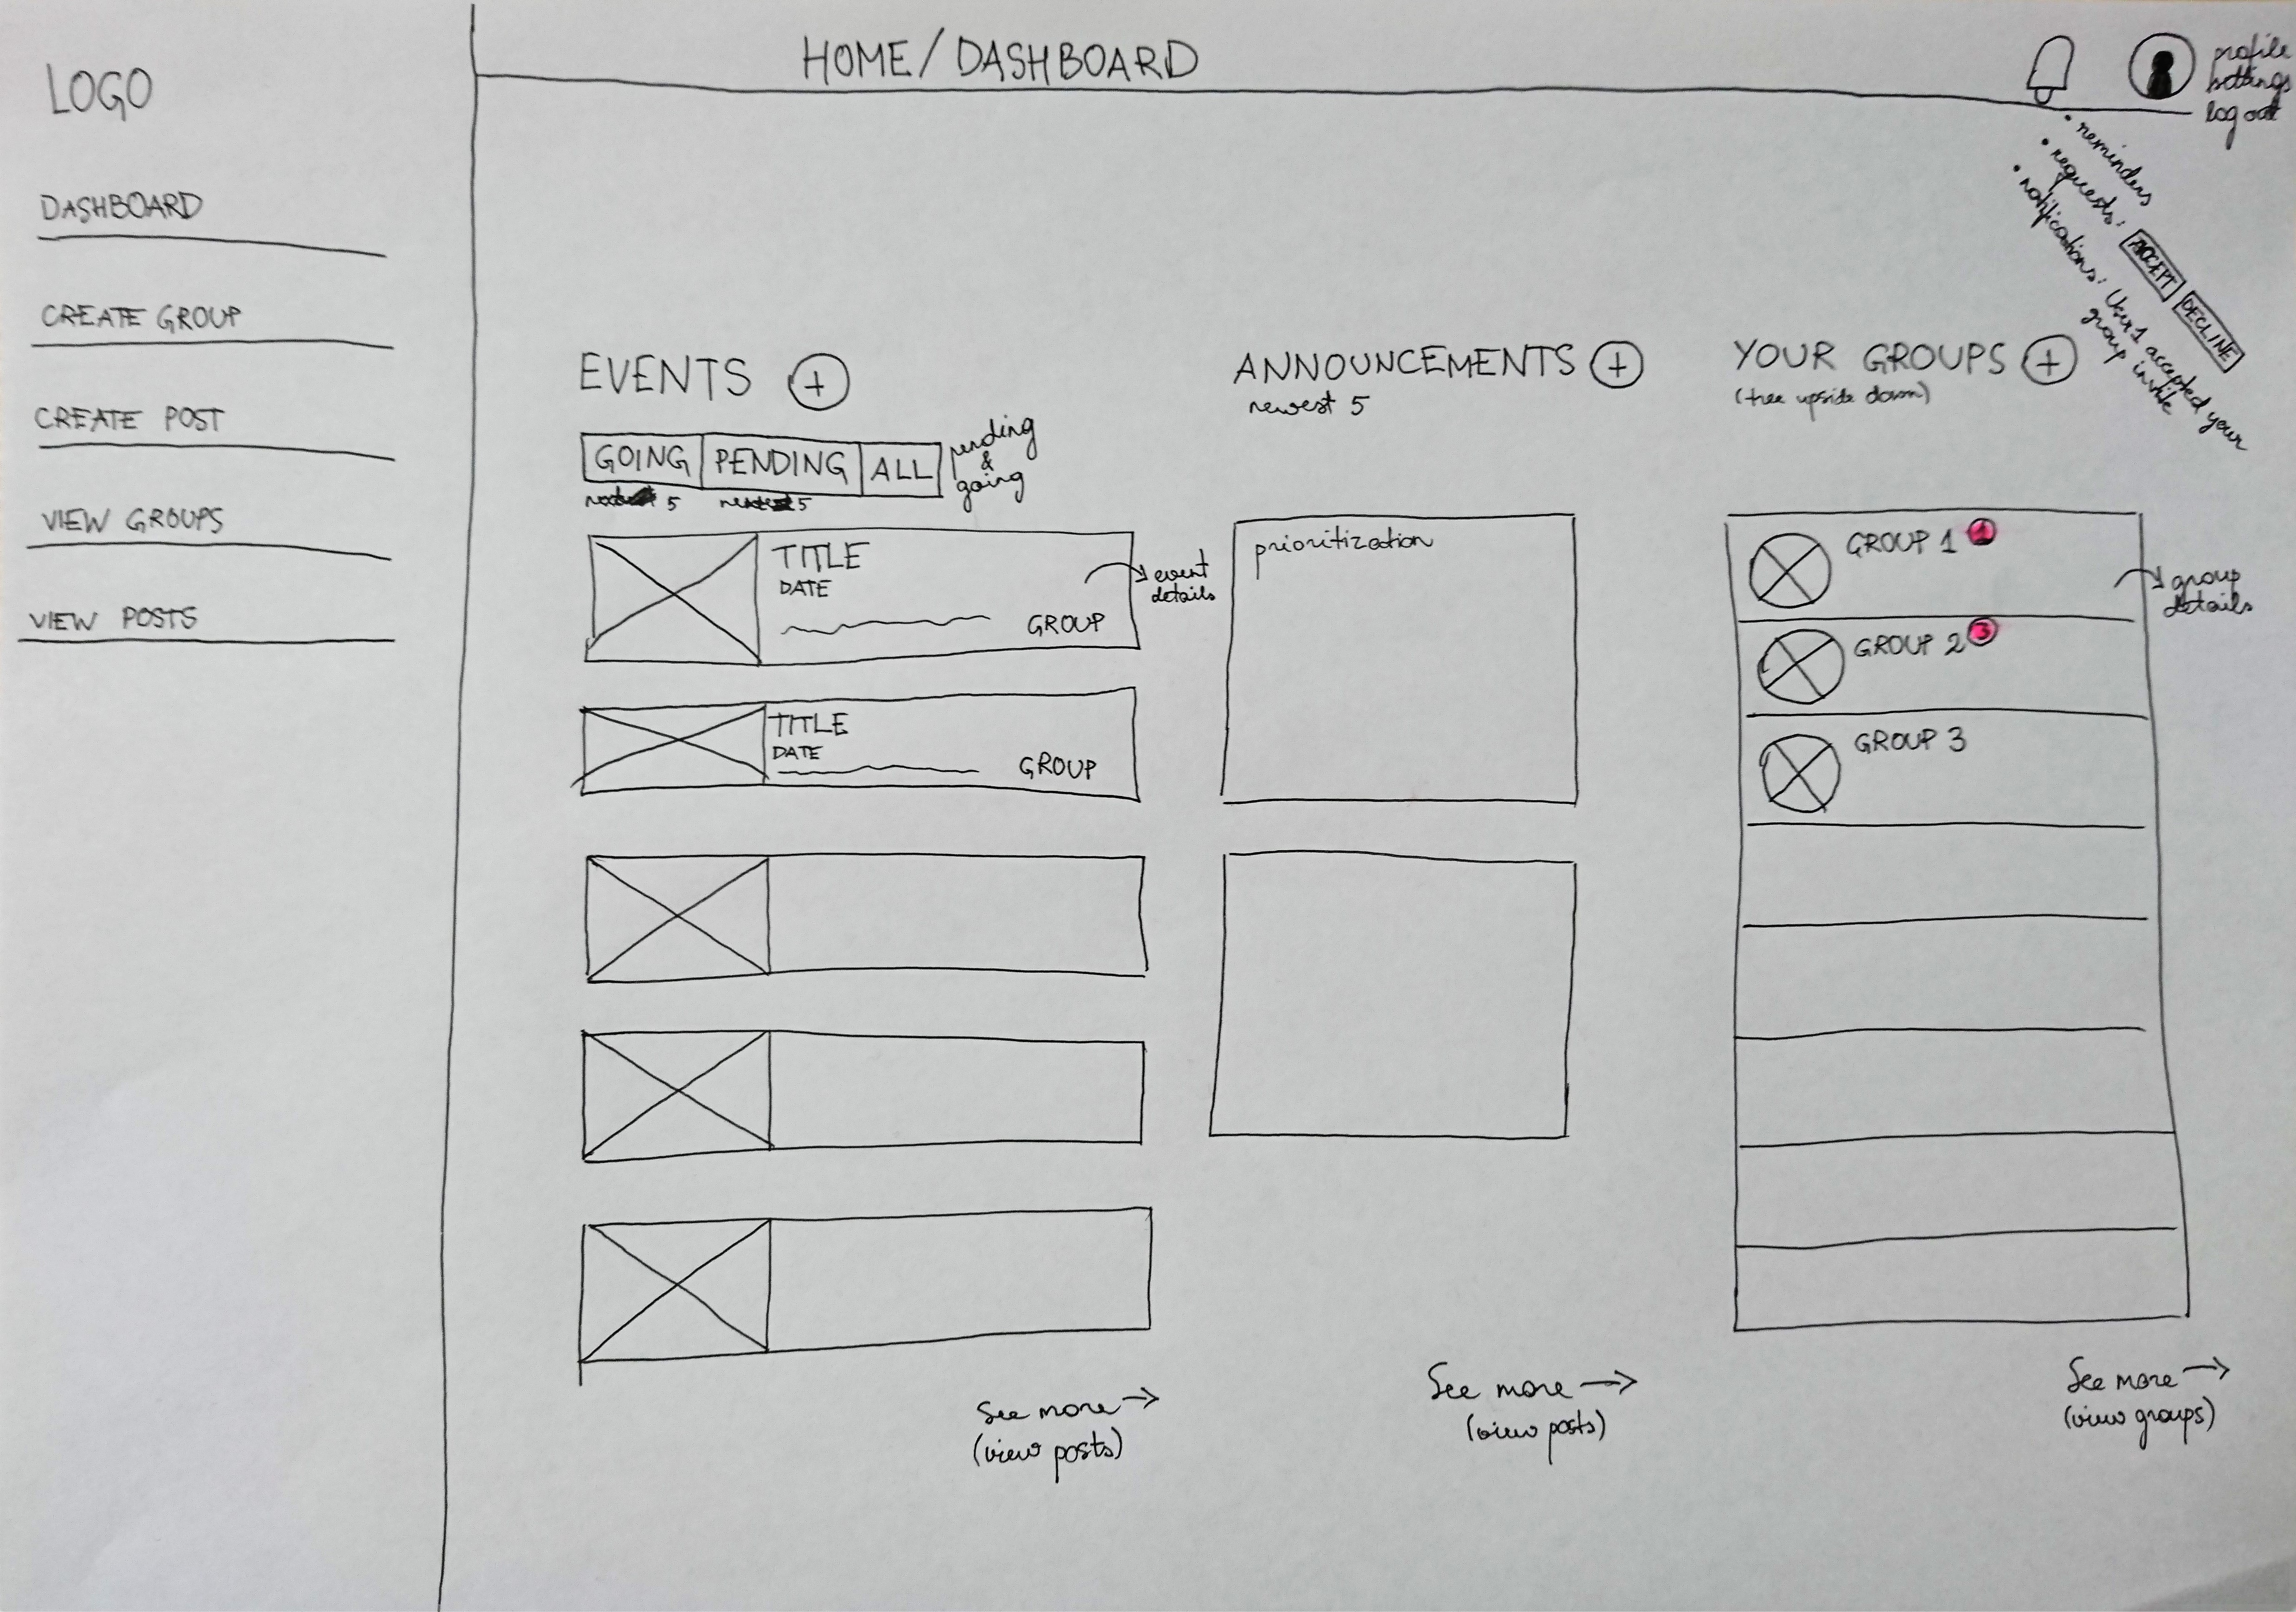 LOGO
DASHBOARD
CREATE GROUP
CREATE POST
VIEW GROUPS
VIEW POSTS
HOME/DASHBOARD
profile
settings
log out
• reminders
• requests: ACCEPT DECLINE
• notifications: User1 accepted your
group invite
EVENTS +
GOING PENDING ALL
pending
&
going
5 5
TITLE
DATE
GROUP
event
details
TITLE
DATE
GROUP
See more →
(view posts)
ANNOUNCEMENTS +
newest 5
prioritization
See more →
(view posts)
YOUR GROUPS +
(tree upside down)
GROUP 1 1
group
details
GROUP 2 3
GROUP 3
See more →
(view groups)